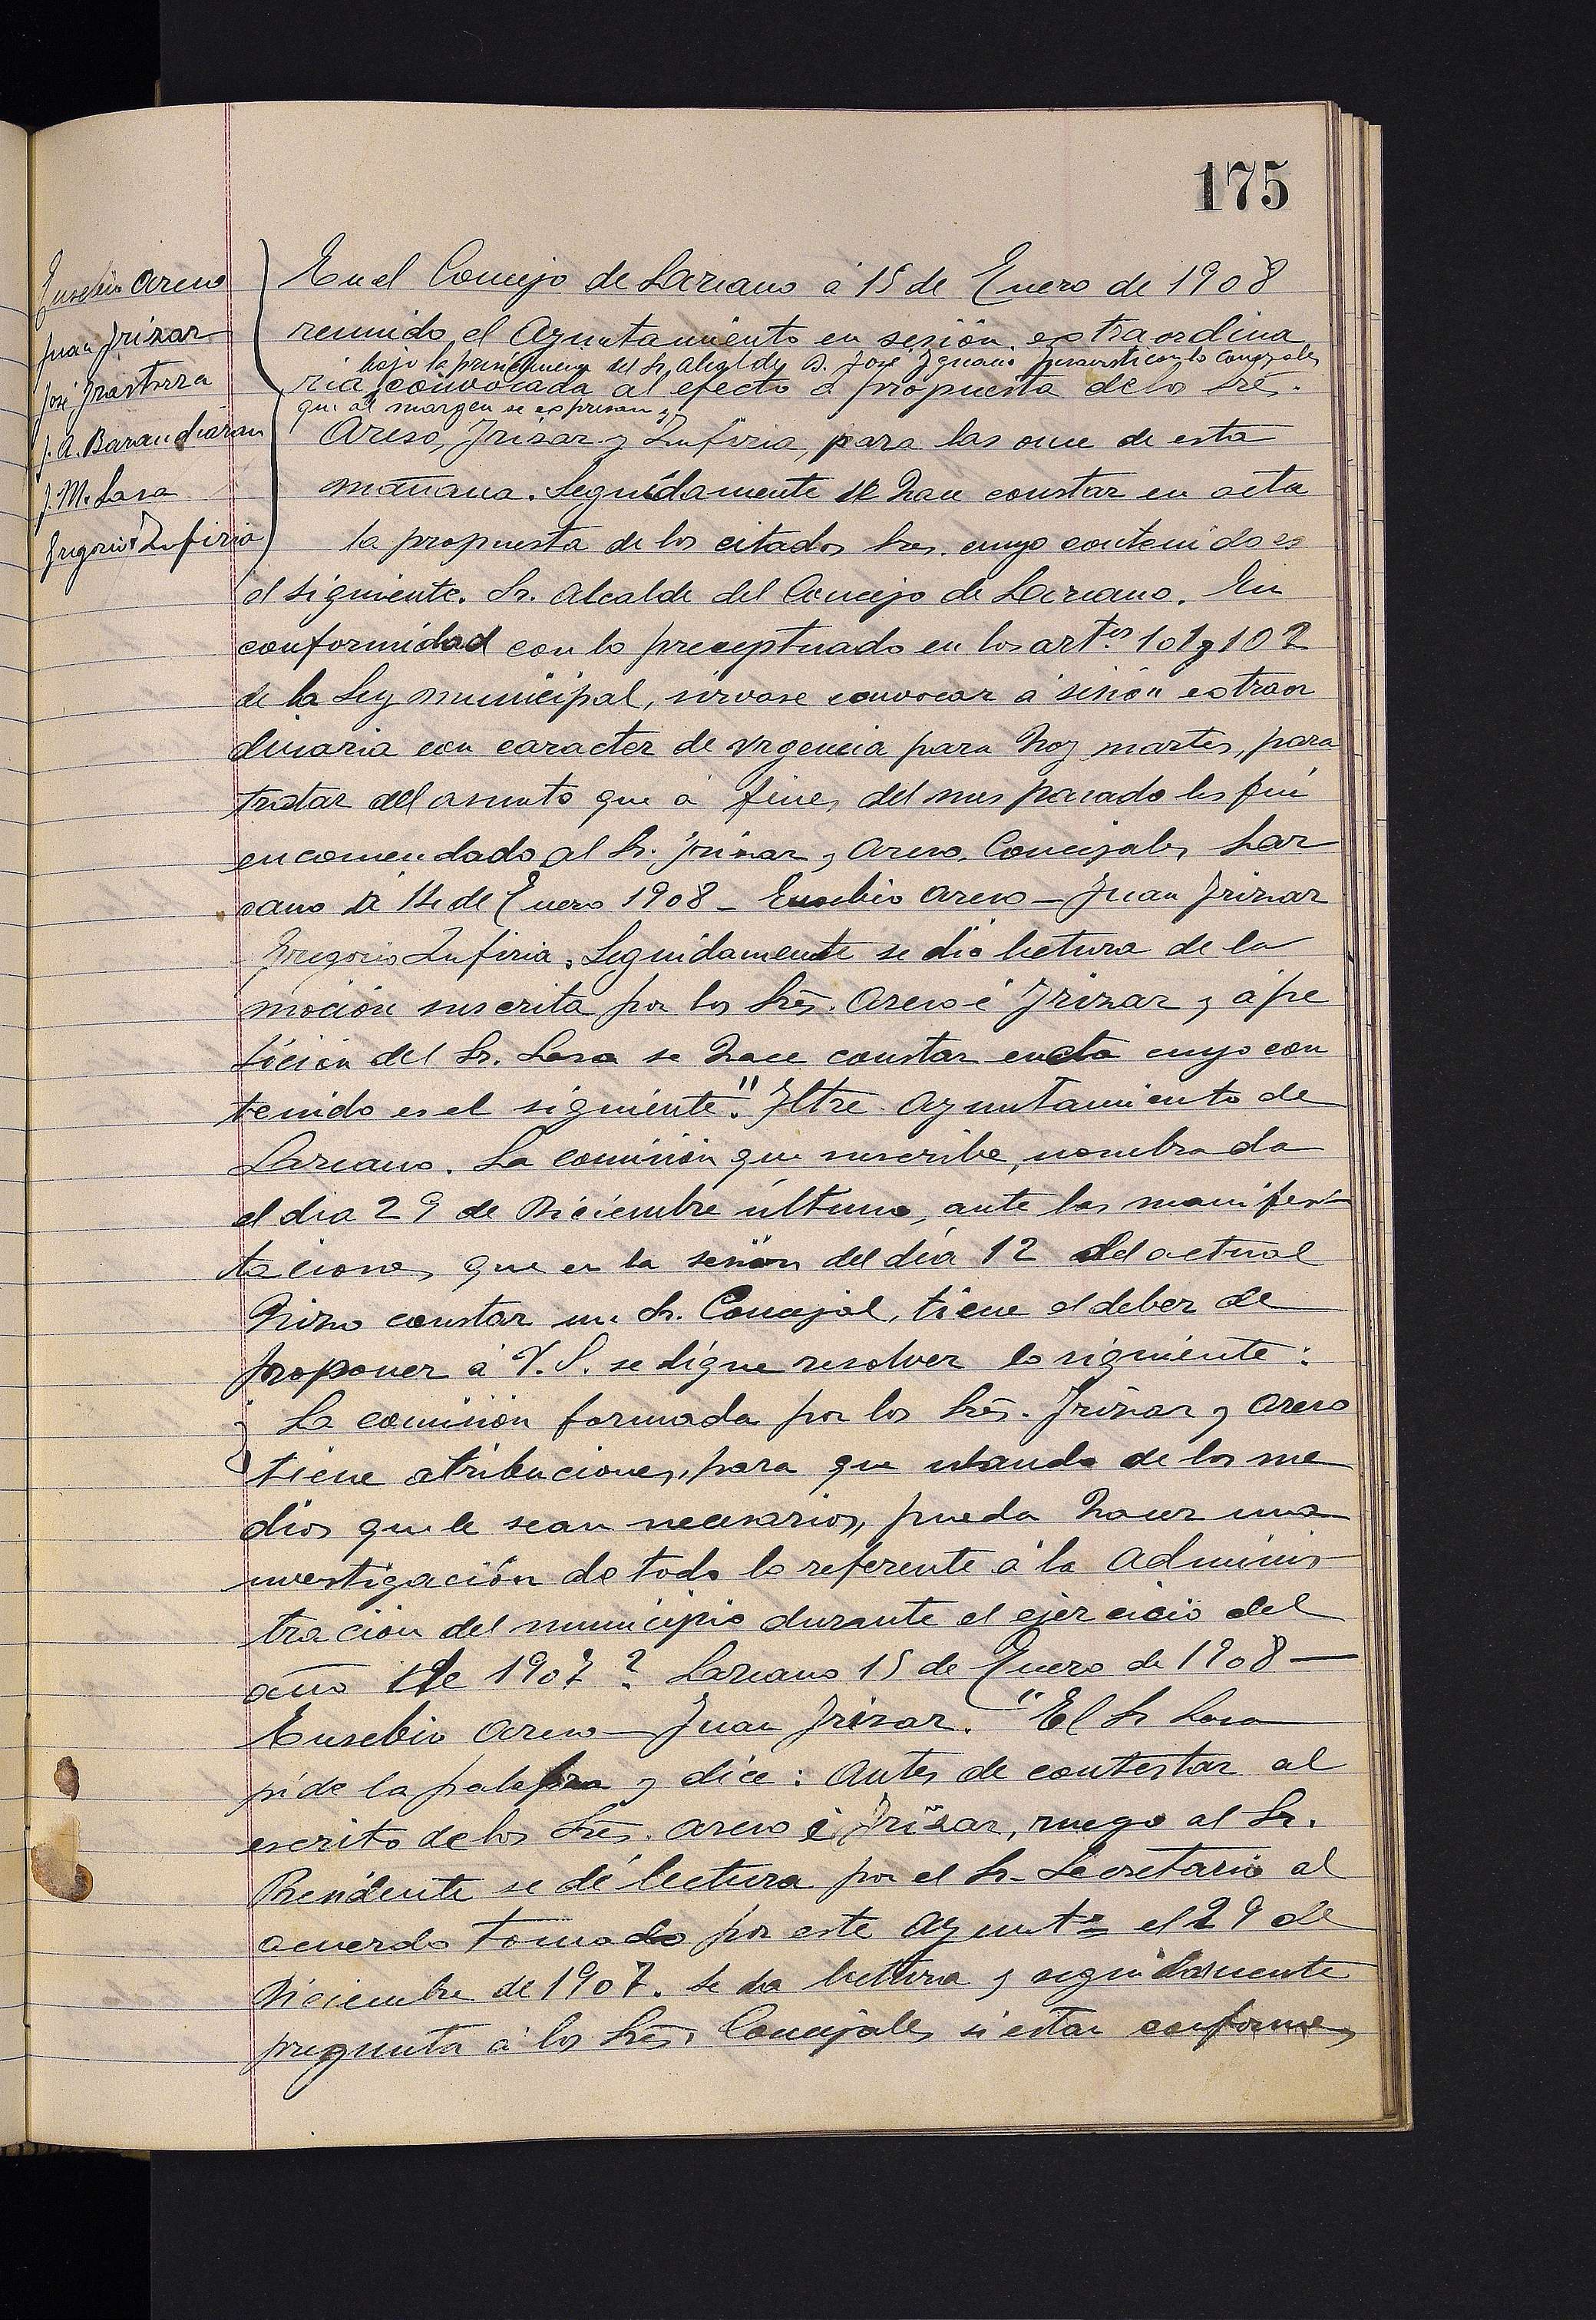 175
Eusebio Areso
Juan Irizar
José Irastorza
J. A. Barandiaran
J. M. Lasa
Gregorio Zufiria
En el Concejo de Lazcano á 15 de Enero de 1908
reunido el Ayuntamiento en sesión extraordina
bajo la presidencia del Sr. Alcalde D. José Ignacio con los Concejales
ria, convocada al efecto á propuesta de los Srēs.
que al margen se expresan y
Areso, Irizar y Zufiria, para las once de esta
mañana. Seguidamente se hace constar en acta
la propuesta de los citados Sres. cuyo contenido es
el siguiente. Sr. Alcalde del Concejo de Lazcano. En
conformidad con lo preceptuado en los art.os 101 y 102
de la Ley municipal, sirvase convocar á sesión extraor
dinaria con caracter de urgencia para hoy martes, para
tratar del asunto que á fines del mes pasado les fué
encomendado al Sr. Irizar y Areso. Concejales Laz
cano á 14 de Enero 1908 - Eusebio Areso - Juan Irizar
Gregorio Zufiria. Seguidamente se dió lectura de la
moción suscrita por los Srēs. Areso é Irizar y á pe
tición del Sr. Lasa se hace constar en acta cuyo con
tenido es el siguiente." Iltre Ayuntamiento de
Lazcano. La comisión que suscribe, nombrada
el dia 29 de Diciembre último, ante las manifes
taciones que en la sesión del día 12 del actual
hizo constar un Sr. Concejal, tiene el deber de
proponer á V. S. se digne resolver lo siguiente:
¿ La comisión formada por los Srēs. Irizar y Areso
tiene atribuciones, para que usando de los me
dios que le sean necesarios, pueda hacer una
investigación de todo lo referente á la Adminis
tración del municipio durante el ejercicio del
año de 1907? Lazcano 15 de Enero de 1908 —
Eusebio Areso — Juan Irizar. "El Sr Lasa
pide la palabra y dice: Antes de contestar al
escrito de los Srēs. Areso é Irizar, ruego al Sr.
Presidente se dé lectura por el Sr. Secretario al
acuerdo tomado por este Ayunt.º el 29 de
Diciembre de 1907. Se da lectura y seguidamente
pregunta á los Srēs. Concejales si estan conformes